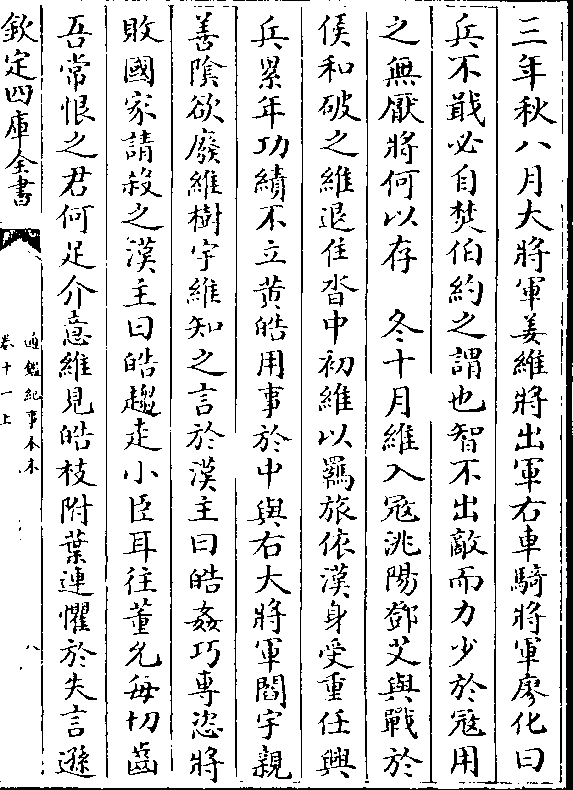 三年秋八月大將軍姜維將出軍右車騎將軍廖化曰
兵不戢必自焚伯約之謂也智不出敵而力少於寇用
之無厭將何以存　冬十月維入寇洮陽鄧艾與戰於
侯和破之維退住沓中初維以羈旅依漢身受重任興
兵累年功績不立黃皓用事於中與右大將軍閻宇親
善陰欲廢維樹宇維知之言於漢主曰皓姦巧專恣將
敗國家請殺之漢主曰皓趨走小臣耳往董允每切齒
吾常恨之君何足介意維見皓枝附葉連懼於失言遜
欽定四庫全書
通鑑紀事本末
卷十一上
八